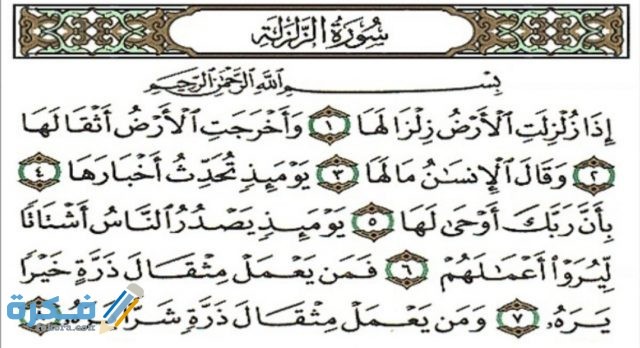 سُورَةُ الزَّلْزَلَةِ
بِسْمِ اللَّهِ الرَّحْمَٰنِ الرَّحِيمِ
إِذَا زُلْزِلَتِ الْأَرْضُ زِلْزَالَهَا ١ وَأَخْرَجَتِ الْأَرْضُ أَثْقَالَهَا
٢ وَقَالَ الْإِنسَانُ مَا لَهَا ٣ يَوْمَئِذٍ تُحَدِّثُ أَخْبَارَهَا ٤
بِأَنَّ رَبَّكَ أَوْحَىٰ لَهَا ٥ يَوْمَئِذٍ يَصْدُرُ النَّاسُ أَشْتَاتًا
لِّيُرَوْا أَعْمَالَهُمْ ٦ فَمَن يَعْمَلْ مِثْقَالَ ذَرَّةٍ خَيْرًا
يَرَهُ ٧ وَمَن يَعْمَلْ مِثْقَالَ ذَرَّةٍ شَرًّا يَرَهُ
فكرة